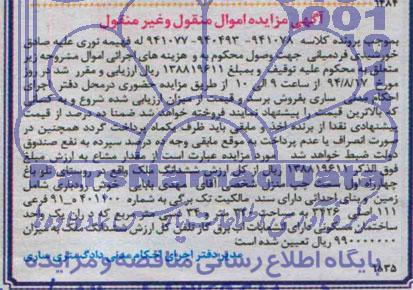 ۱۲۸۴
آگهی مزایده اموال منقول و غیر منقول
بموجب پرونده کلاسه ۹۴۱۰۷۸ ۹۴۰۴۹۳ ۹۴۱۰۷۷ له فهیمه نوری علیه صادق
فردمیانی جهت وصول محکوم به و هزینه های اجرائی اموال مشروحه زیر
متعلق به محکوم علیه توقیف و بمبلغ ۱۳۸۸۱۹۶۱۱ ریال ارزیابی و مقرر شد در روز
مورخ ۹۴/۸/۱۷ از ساعت ۹ الی از طریق مزایده حضوری درمحل دفتر اجرای
احکام مدنی ساری بفروش برسد قیمت از میزان ارزیابی شده شروع و به کسانی
که بالاترین قیمت را پیشنهاد نمایند فروخته خواهد شد ضمنا ده درصد از قیمت
پیشنهادی نقدا از برنده اخذ و مابقی باید ظرف یکماه پرداخت گردد همچنین در
صورت انصراف یا عدم پرداخت به موقع مابقی وجه ده درصد سپرده به نفع صندوق
دولت ضبط خواهد شد مورد مزایده عبارت است از مقدار مشاع به ارزش مبلغ
فوق الذکر ۱۳۸۸۱۹۶۱۱ ریال از کل ارزش ششدانگ ملک واقع در روستای تلو باغ
چهارراه اول سمت چپ منزل شخصی آقای مهدی بابایی خوش رودباری شامل
زمین و بنای احداثی دارای سند مالکیت تک برگی به شماره ۴۰۱۴۰۰ ۹۱ فرعی
۱۱۱ اصلی ۲۴۲۶ به مساحت
ساختمان مسکونی دارای انشعابات آب برق گاز تلفن کل ارزش ششدانگ ملک به میزان
۹۹۰۰۰۰۰۰۰ ریال تعیین شده است
مدیر دفتر اجرای احکام مدنی دادگستری ساری
پایگاه اطلاع رسانی مناقصه و مزایده
۱۸۳۵